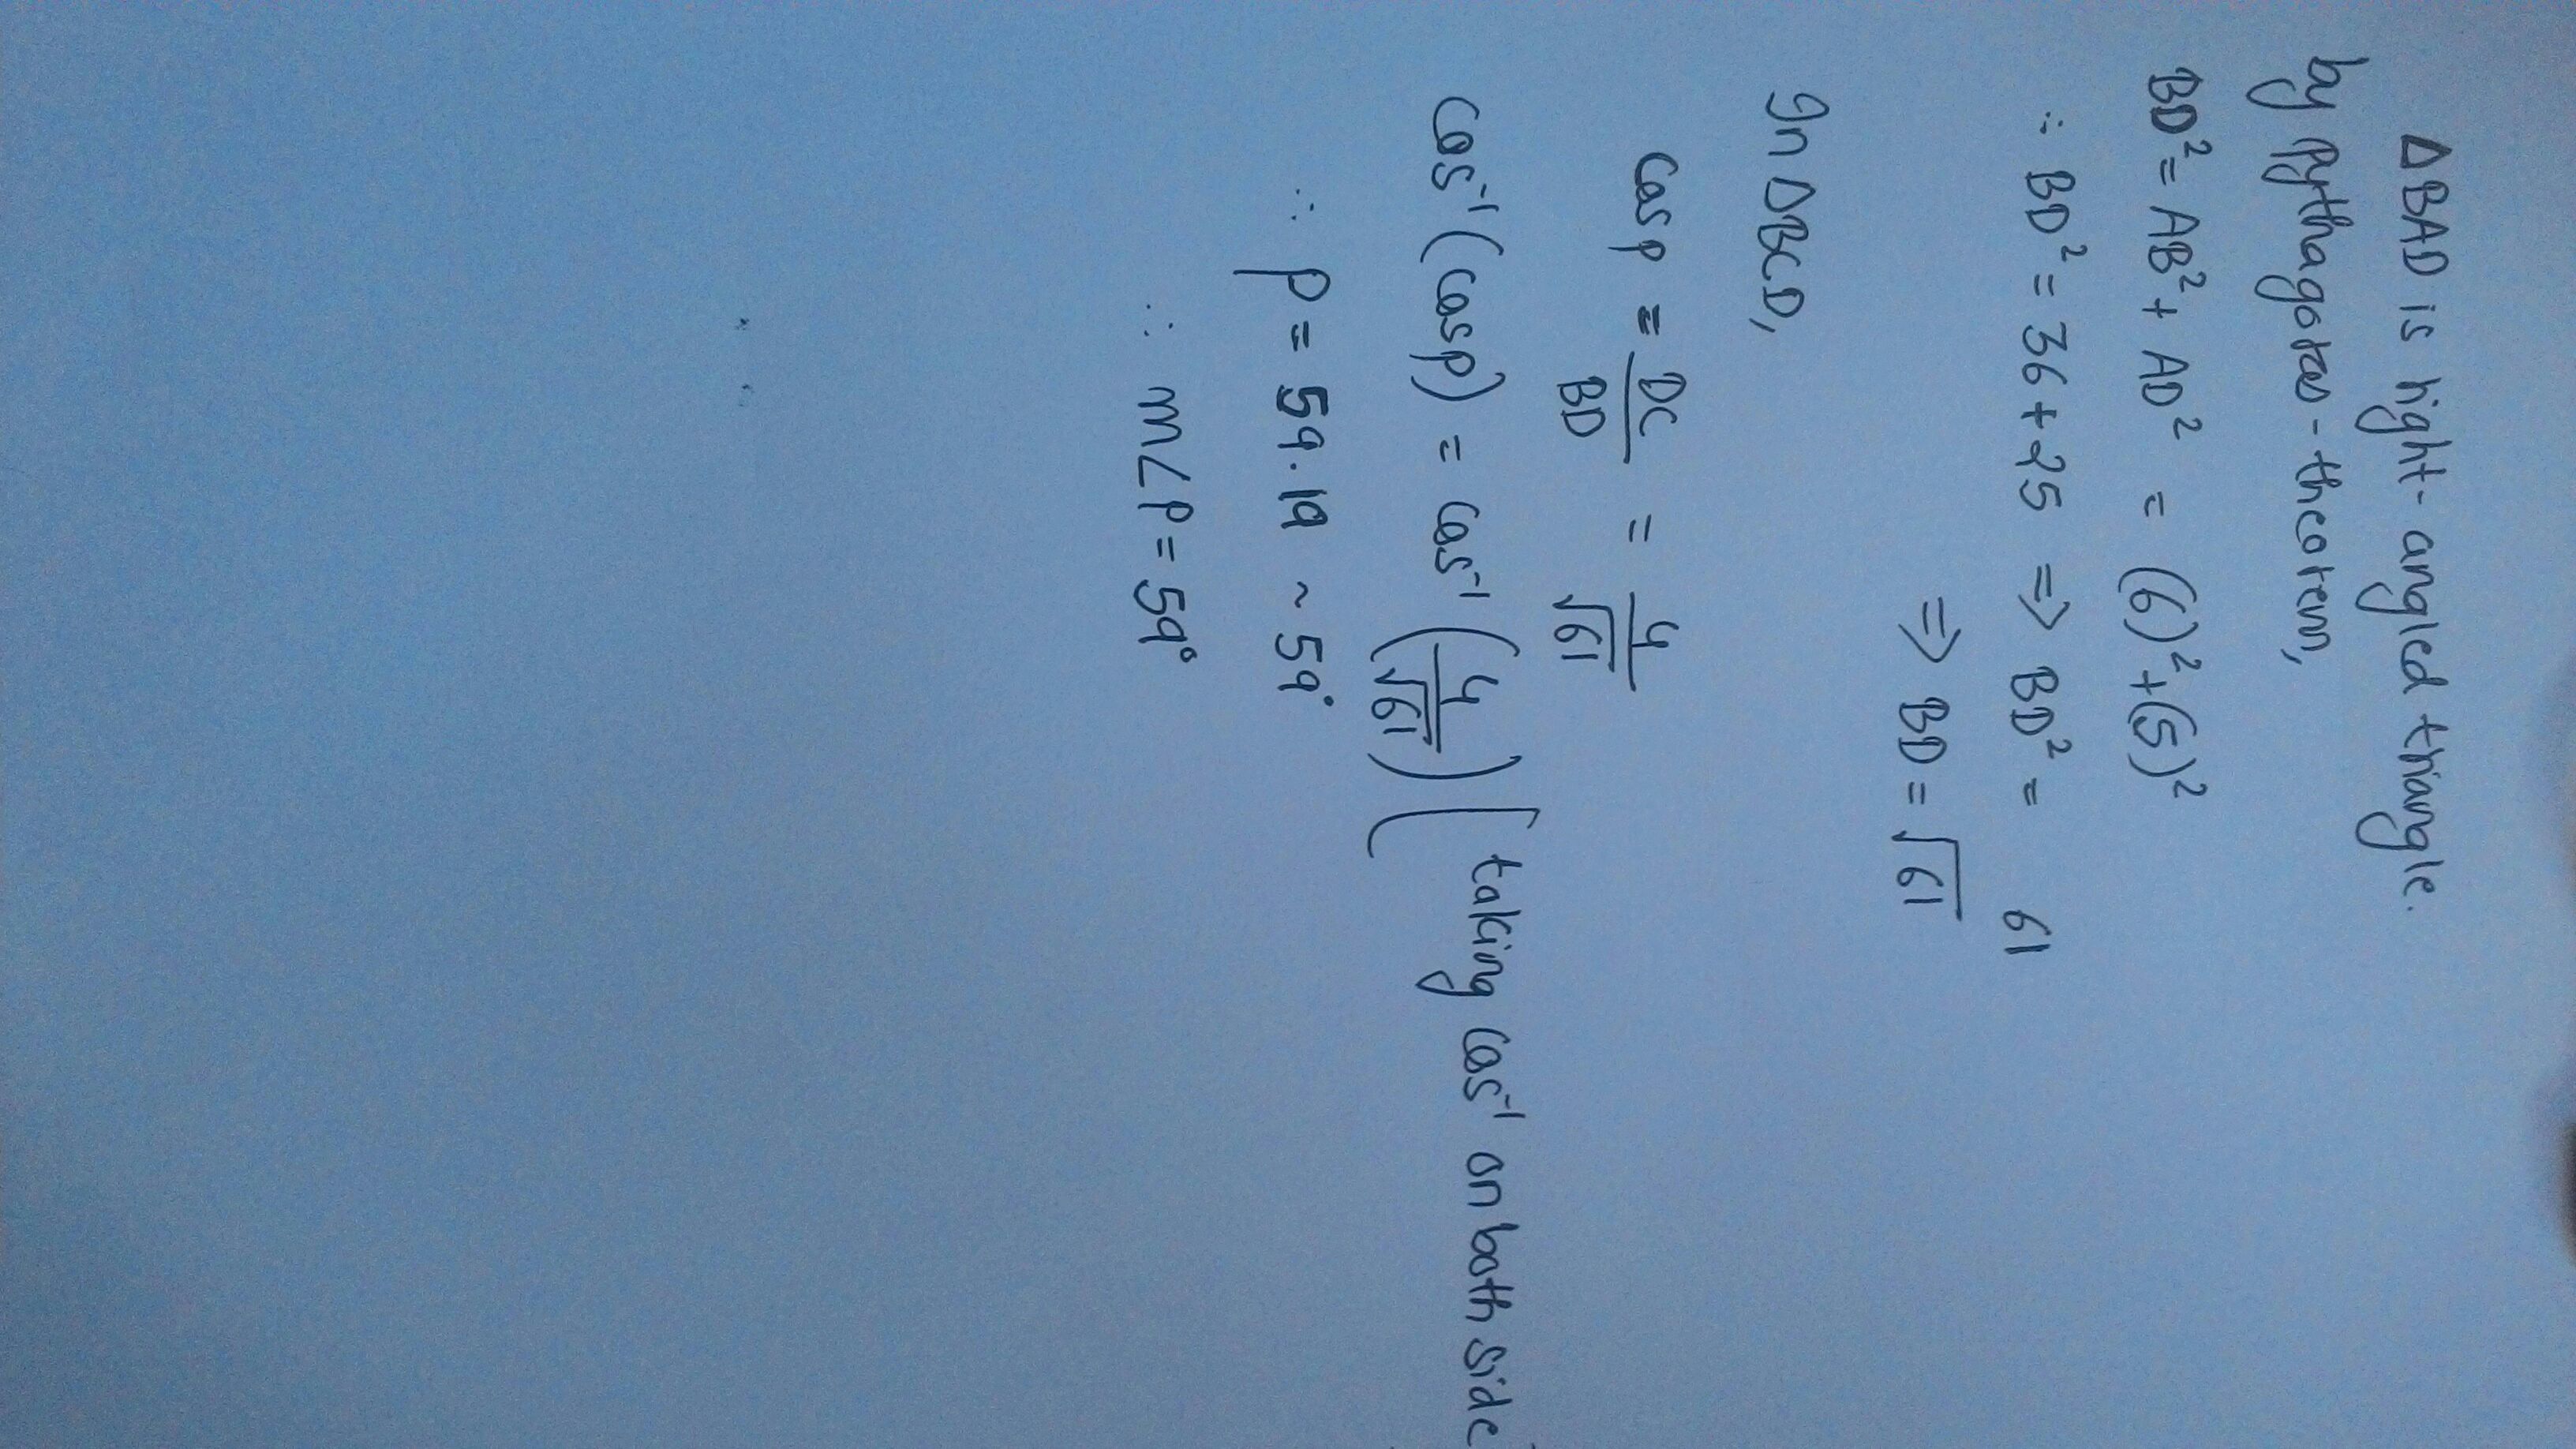 △BAD is right-angled triangle.
by Pythagoras-theorem,
BD² = AB² + AD² = (6)² + (5)²
∴ BD² = 36 + 25 ⇒ BD² = 61
⇒ BD = √61
In △BCD,
Cos p = DC/BD = 4/√61
Cos⁻¹(cosp) = cos⁻¹(4/√61) [taking cos⁻¹ on both side
∴ p = 59.19 ~ 59°
∴ m∠p = 59°